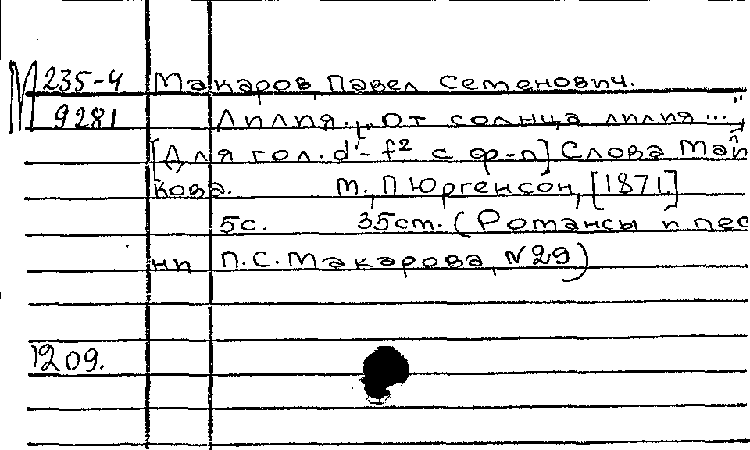 М 235-4 Макаров, Павел Семенович.
9281 Лилия. „От солнца лилия..."
[Для гол. d¹-f² с ф-п] Слова Май
кова. М., П. Юргенсон, [1871.]
5с. 35см. (Романсы и пес
ни П.С. Макарова, №29)
1209.